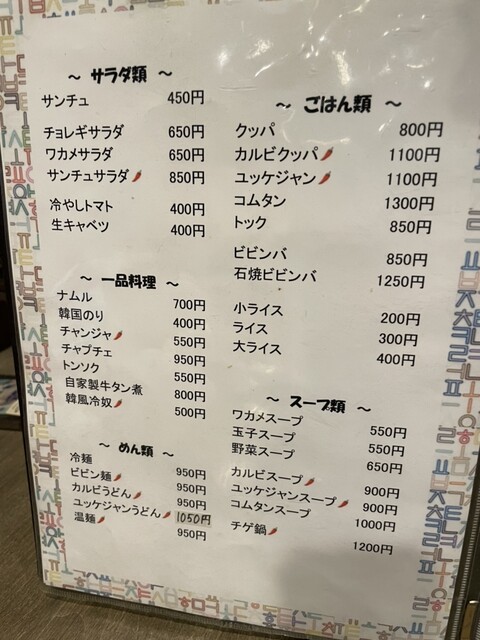 ～ サラダ類 ～
サンチュ 450円
チョレギサラダ 650円
ワカメサラダ 650円
サンチュサラダ 850円
冷やしトマト 400円
生キャベツ 400円
～ 一品料理 ～
ナムル 700円
韓国のり 400円
チャンジャ 550円
チャプチェ 950円
トンソク 550円
自家製牛タン煮 800円
韓風冷奴 500円
～ めん類 ～
冷麺 950円
ビビン麺 950円
カルビうどん 950円
ユッケジャンうどん 1050円
温麺 950円
～ ごはん類 ～
クッパ 800円
カルビクッパ 1100円
ユッケジャン 1100円
コムタン 1300円
トック 850円
ビビンバ 850円
石焼ビビンバ 1250円
小ライス 200円
ライス 300円
大ライス 400円
～ スープ類 ～
ワカメスープ 550円
玉子スープ 550円
野菜スープ 650円
カルビスープ 900円
ユッケジャンスープ 900円
コムタンスープ 1000円
チゲ鍋 1200円